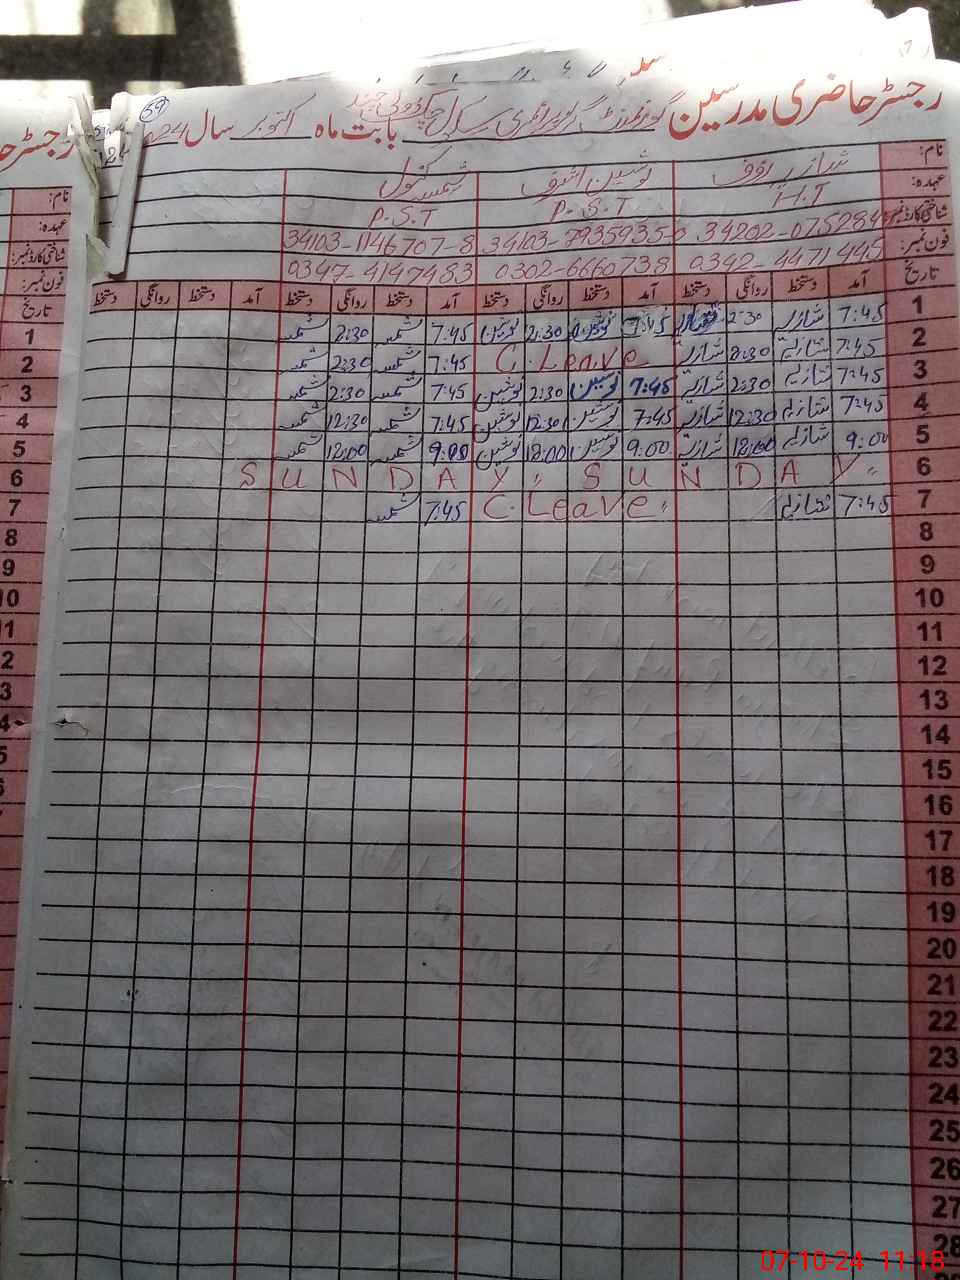 رجسٹر حاضری مدرسین گورنمنٹ گرلز پرائمری سکول چک دولی چند بابت ماہ اکتوبر سال 2024
59
نام: شازیہ رؤف نوشین اشرف شمسہ کنول
عہدہ: H.T P.S.T P.S.T
شناختی کارڈ نمبر: 34202-0752844 34103-7935935-0 34103-1146707-8
فون نمبر: 0342-4471445 0302-6660738 0347-4147483
تاریخ آمد دستخط روانگی دستخط آمد دستخط روانگی دستخط آمد دستخط روانگی دستخط آمد دستخط روانگی دستخط
1 7:45 شازیہ 2:30 شازیہ 7:45 نوشین 2:30 نوشین 7:45 شمسہ 2:30 شمسہ
2 7:45 شازیہ 2:30 شازیہ C Leave 7:45 شمسہ 2:30 شمسہ
3 7:45 شازیہ 2:30 شازیہ 7:45 نوشین 2:30 نوشین 7:45 شمسہ 2:30 شمسہ
4 7:45 شازیہ 12:30 شازیہ 7:45 نوشین 12:30 نوشین 7:45 شمسہ 12:30 شمسہ
5 9:00 شازیہ 12:00 شازیہ 9:00 نوشین 12:00 نوشین 9:00 شمسہ 12:00 شمسہ
6 S U N D A Y " S U N D A Y "
7 7:45 شازیہ C. Leave " 7:45 شمسہ
8
9
10
11
12
13
14
15
16
17
18
19
20
21
22
23
24
25
26
27
28
07-10-24 11:18